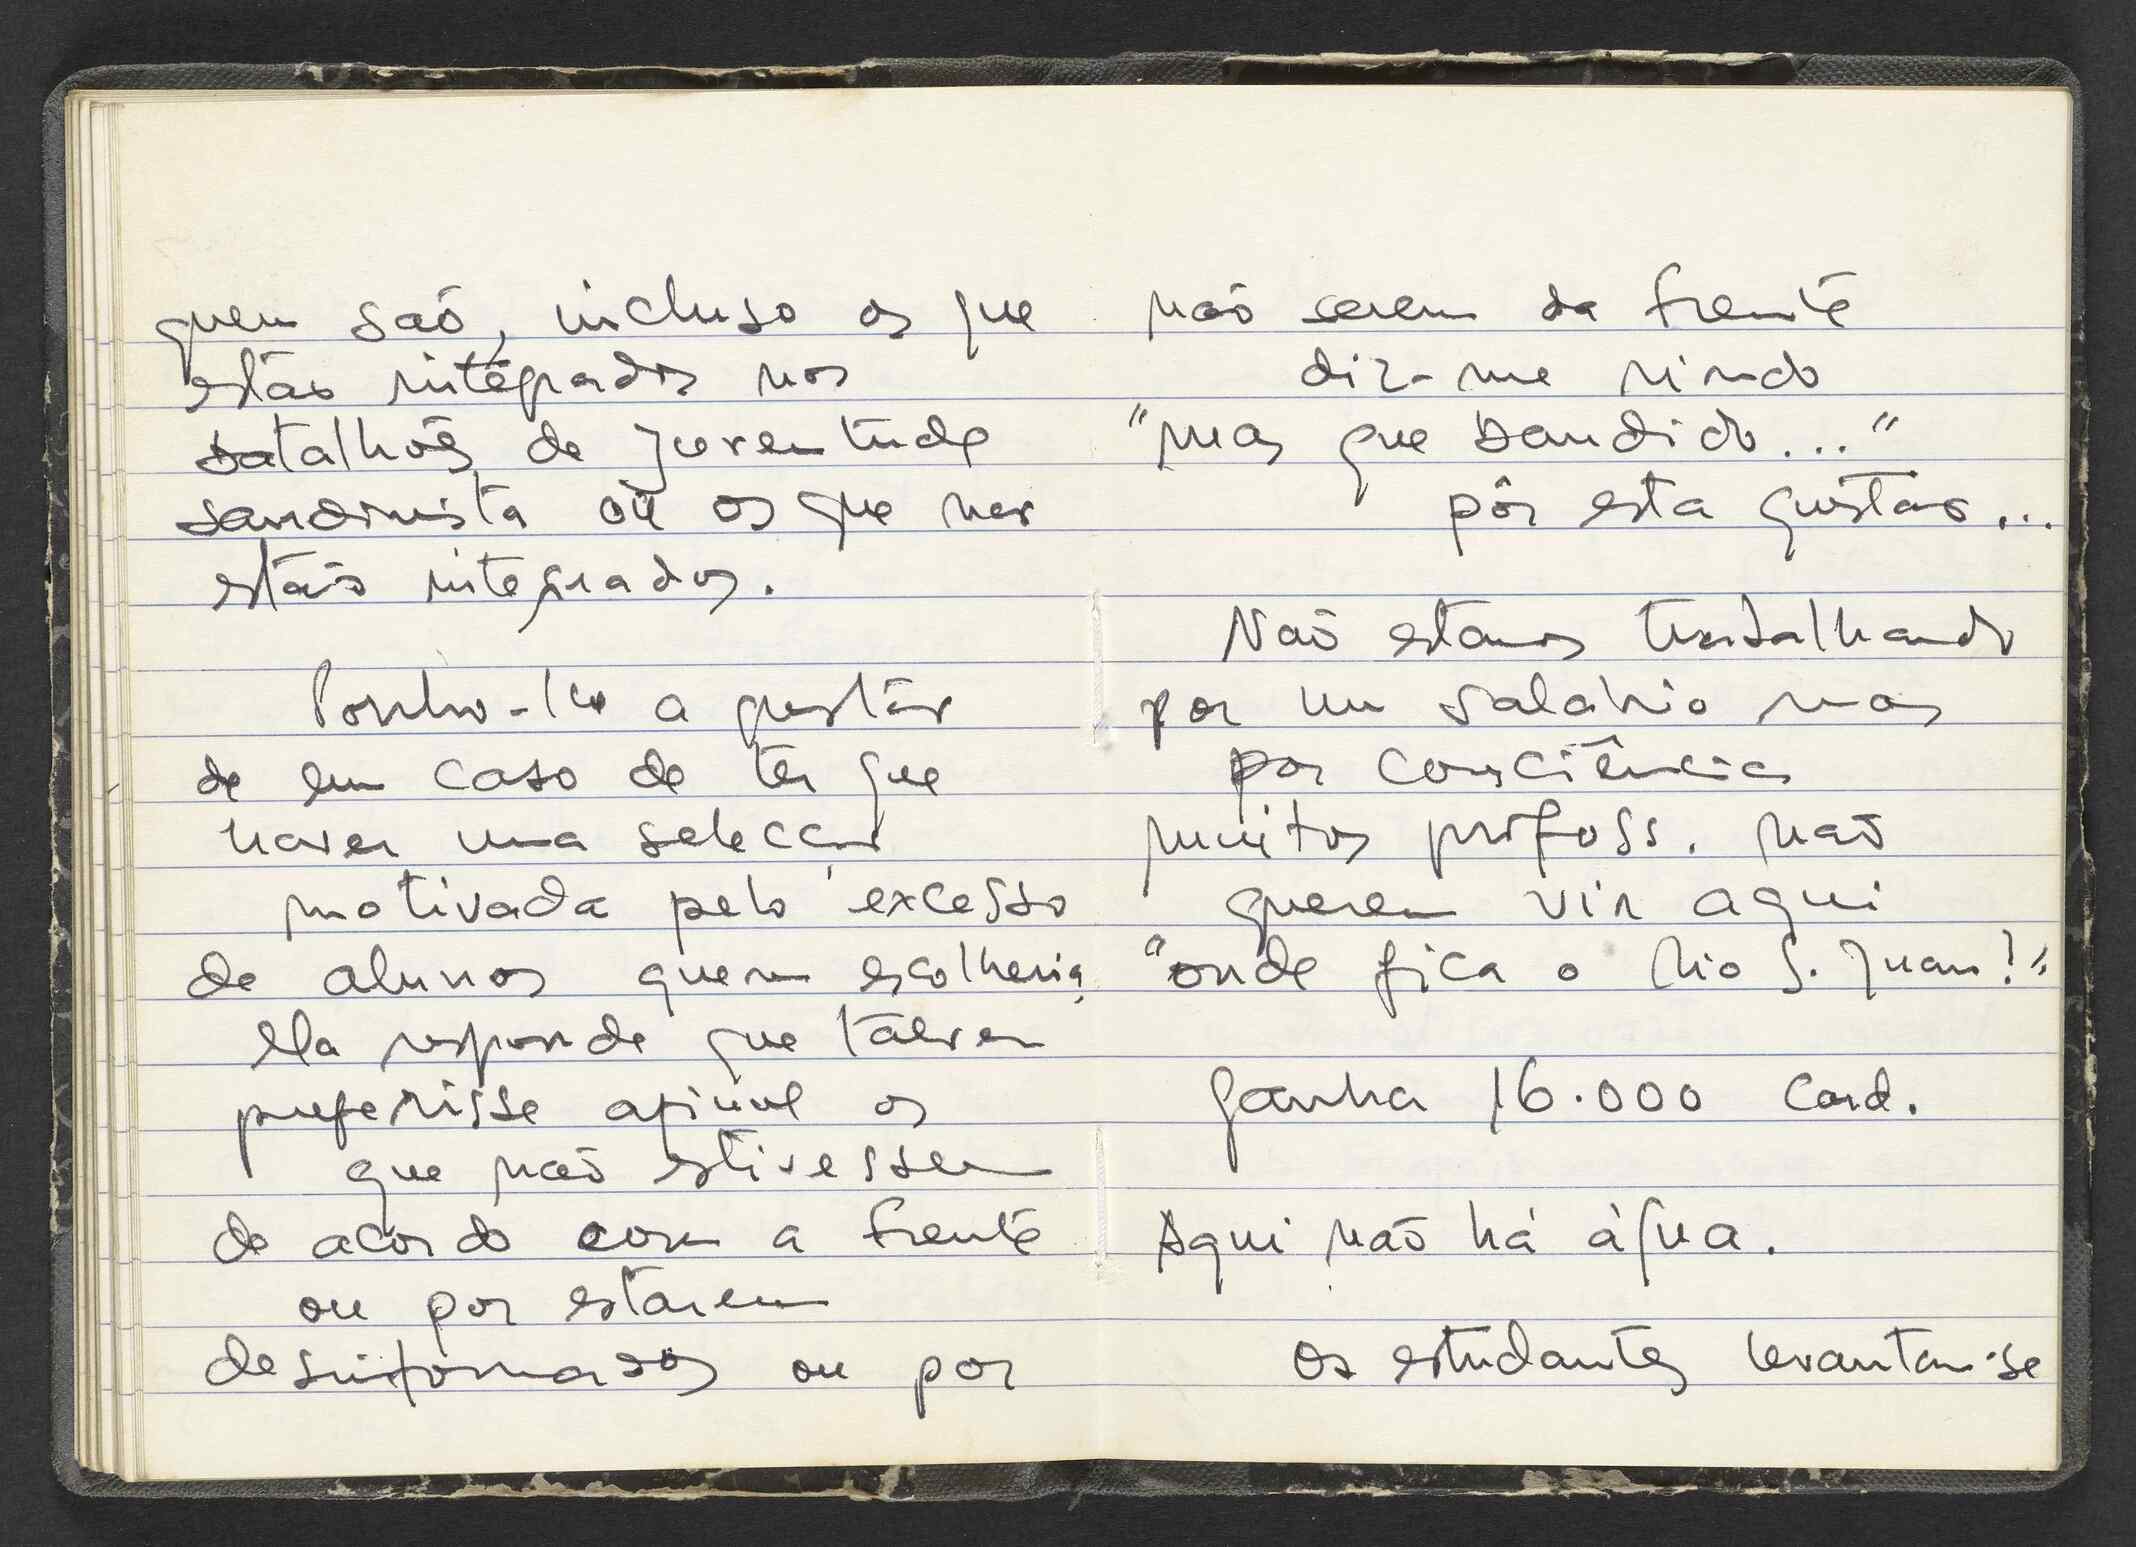 quem são, incluso os que
estão integrados nos
batalhões de juventude
sandinista ou os que não
estão integrados.
Ponho-lhe a questão
de em caso de ter que
haver uma selecção
motivada pelo excesso
de alunos quem escolheria,
ela responde que talvez
preferisse apinol os
que não estivessem
de acordo com a frente
ou por estarem
desinformados ou por
não serem da frente
diz-me rindo
"mas que bandido..."
pôr esta questão...
Não estamos trabalhando
por um salário mas
por consciência
muitos profess. não
querem vir aqui
"onde fica o Rio S. Juan?"
Ganha 16.000 Cord.
Aqui não há água.
Os estudantes levantam-se